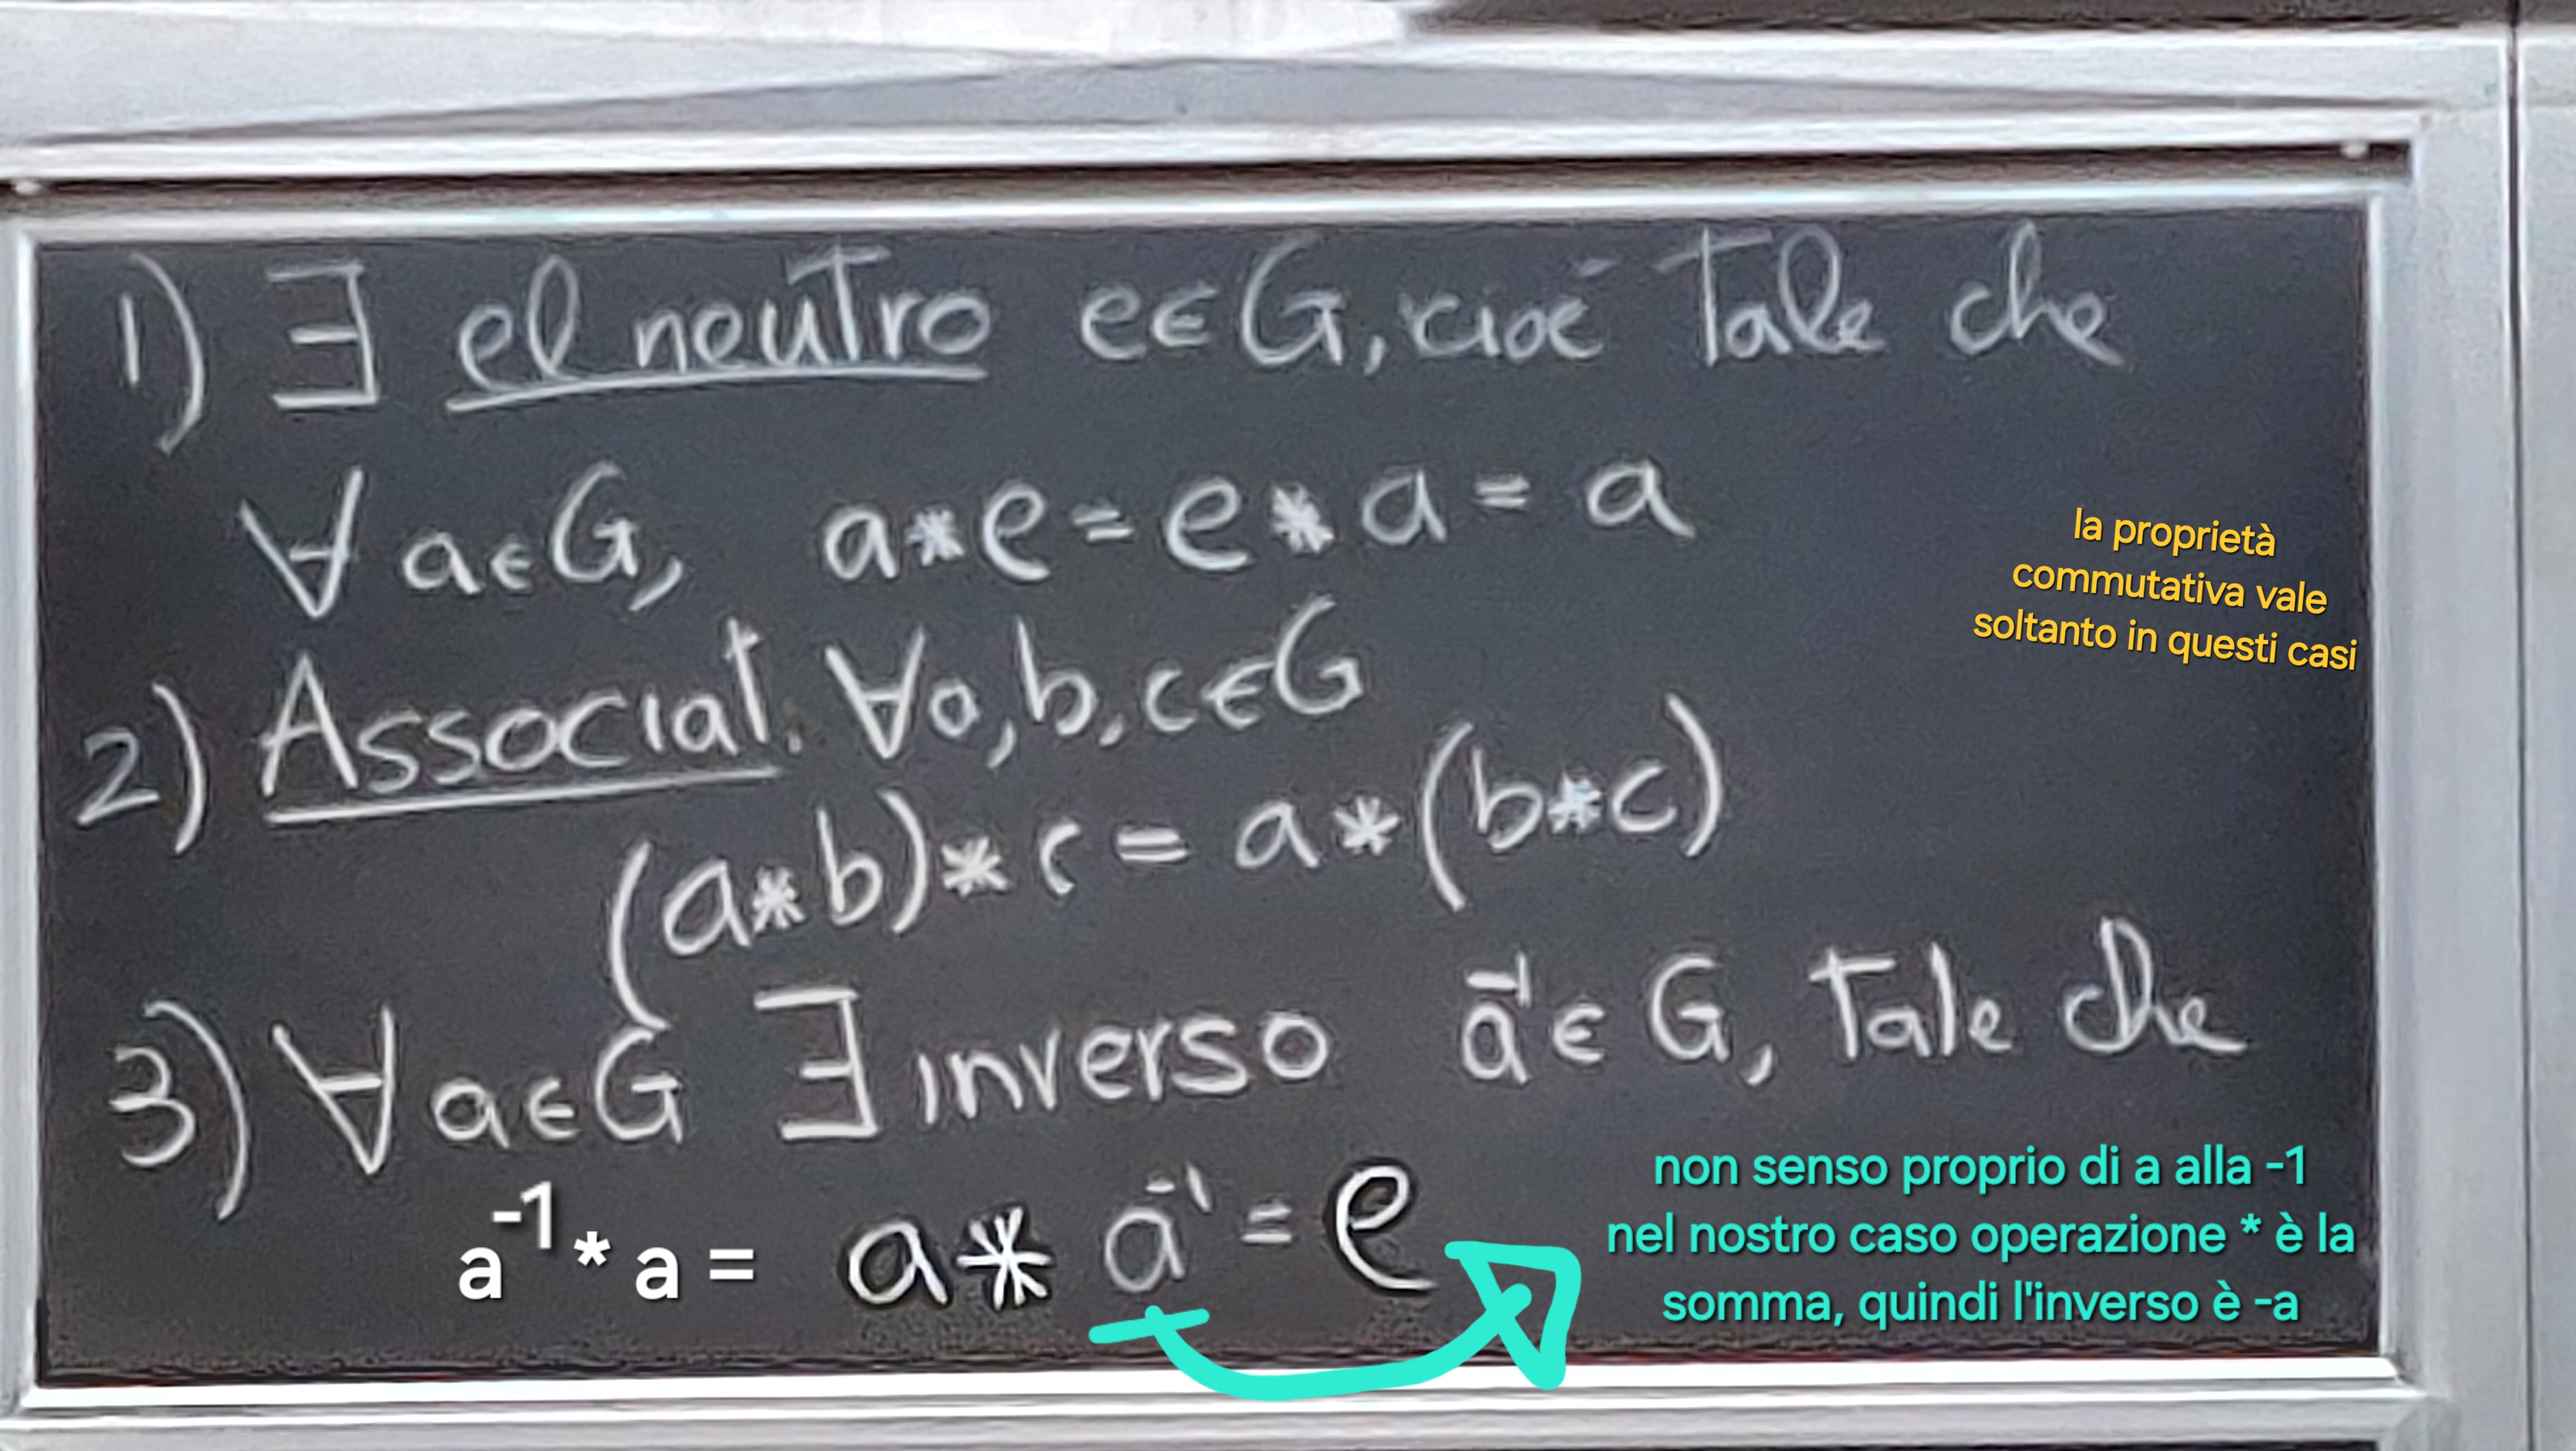 1) ∃ el neutro e∈G, cioè tale che
∀ a∈G, a*e=e*a=a
la proprietà
commutativa vale
soltanto in questi casi
2) Associat. ∀a,b,c∈G
(a*b)*c = a*(b*c)
3) ∀a∈G ∃ inverso a⁻¹∈G, tale che
a⁻¹ * a = a * a⁻¹ = e
non senso proprio di a alla -1
nel nostro caso operazione * è la
somma, quindi l'inverso è -a